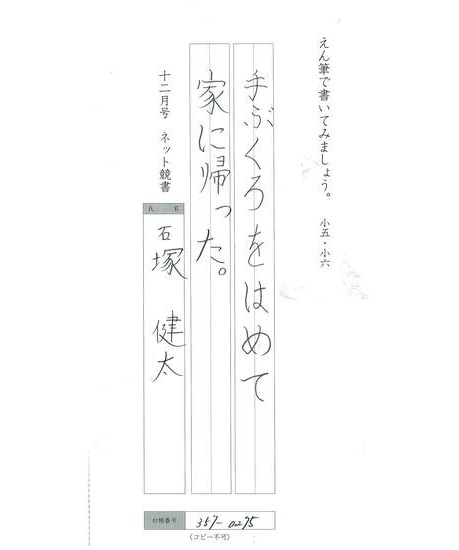 えん筆で書いてみましょう。 小五・小六
手ぶくろをはめて
家に帰った。
十二月号 ネット競書
氏 名
石塚 健太
台帳番号 357-0275
(コピー不可)